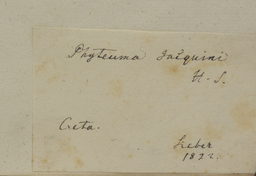 Phyteuma Jacquini
H-S.
Creta.
Sieber
1822